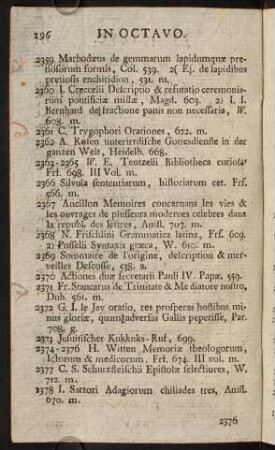 196 IN OCTAVO.
2359 Marbodæus de gemmarum lapidumquæ pre-
tiosorum formis, Col. 539. 2( Ej. de lapidibus
pretiosis enchiridion, 531. m.
2360 I. Creccelii Descriptio & refutatio ceremonia-
rum pontificiæ missæ, Magd. 603. 2) I. I.
Bernhard de fractione panis non necessaria, W.
608. m.
2361 C. Trygophori Orationes, 622. m.
2362 A. Rosen unterirrdische Gottesdienste in der
ganzen Welt, Heidelb. 668.
2363-2365 W. E. Tentzelii Bibliotheca curiosa
Frf. 698. III Vol. m.
2366 Silvula sententiarum, historiarum cet. Frf.
566. m.
2367 Ancillon Memoires concernans les vies &
les ouvrages de plesieurs modernes celebres dans
la republ. des lettres, Amst. 707. m.
2368 N. Frischlini Grammatica latina, Frf. 609.
2) Posselii Syntaxis græca, W. 610. m.
2369 Sommaire de l'origine, description & mer-
veilles Descosse, 538. n.
2370 Actiones duæ secretarii Pauli IV. Papæ. 559.
2371 Fr. Stancarus de Trinitate & Mediatore nostro,
Dub. 561. m.
2372 G. I. le Jay oratio, res prosperas hostibus mi-
nus gloriæ, quam adversas Gallis peperisse, Par.
708. g.
2373 Jesuitischer Kukkuks-Ruf, 699.
2374-2376 H. Witten Memoriæ theologorum,
Ictorum & medicorum, Frf. 674. III vol. m.
2377 C. S. Schurzfleischii Epistolæ selectiores, W.
712. m.
2378 I. Sartori Adagiorum chiliades tres, Amst.
670. m.
2376